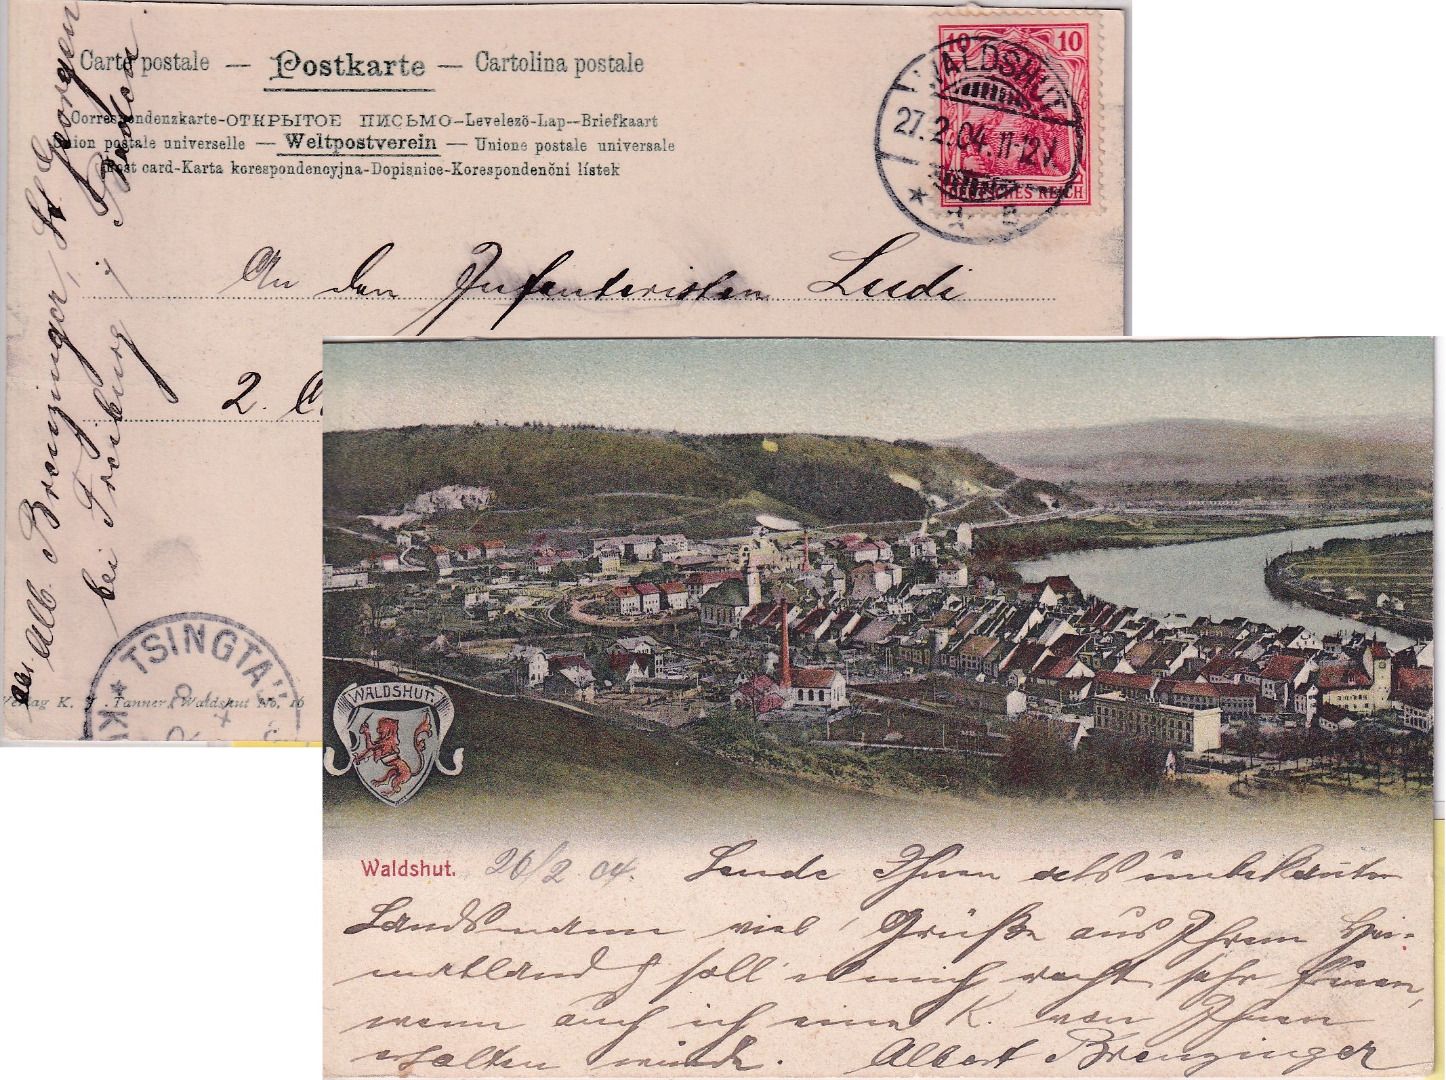 Carte postale — Postkarte — Cartolina postale
Correspondenzkarte-ОТКРЫТОЕ ПИСЬМО-Levelező-Lap--Briefkaart
Union postale universelle — Weltpostverein — Unione postale universale
Post card-Karta korespondencyjna-Dopisnice-Korespondenční lístek
10 10
DEUTSCHES REICH
WALDSHUT
27.2.04.11-12V.
An den Infanteristen Ludi
2.
Abs. Alb. Brenzinger, St. Georgen
bei Freiburg i/ Baden.
TSINGTAU
Verlag K. Tanner, Waldshut No. 16
WALDSHUT
Waldshut. 26/2 04. Sende Ihnen als unbekannter
Landsmann viel Grüße aus Ihrem Hei-
matland & soll es mich recht sehr freuen,
wenn auch ich eine K. von Ihnen
erhalten würde. Albert Brenzinger